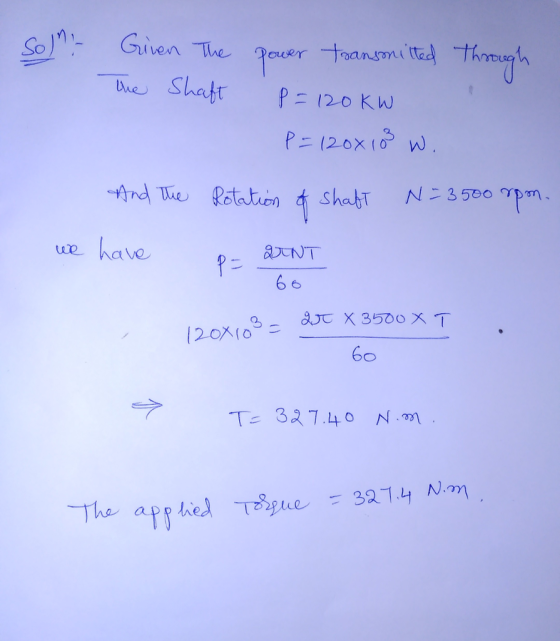 Solⁿ:- Given The power transmitted Through
The Shaft P = 120 KW
P = 120×10³ W.
And The Rotation of shaft N = 3500 rpm.
we have P = 2πNT
60
120×10³ = 2π × 3500 × T
60
⇒ T = 327.40 N.m.
The applied Torque = 327.4 N.m.